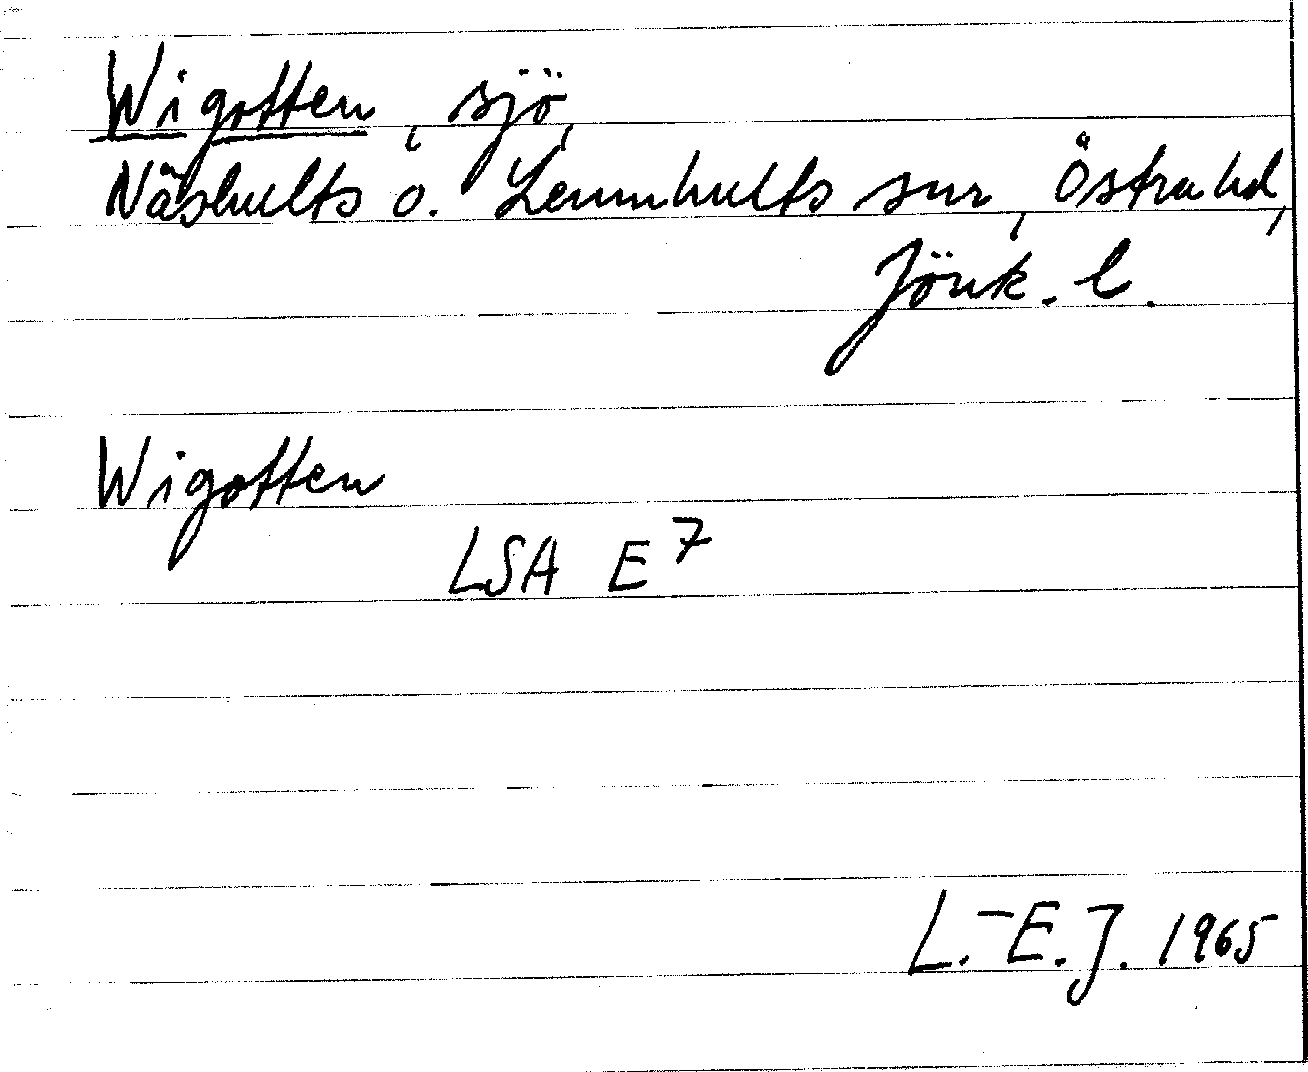 Wigotten, sjö,
Näshults o. Lemnhults snr, Östra hd,
Jönk. l.
Wigotten
LSA E7
L.-E. J. 1965